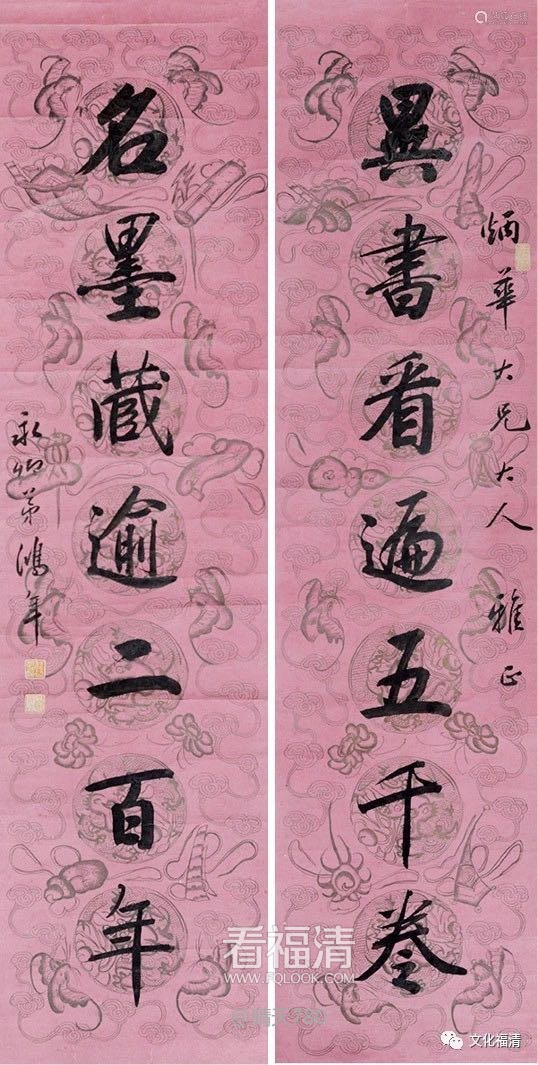 炳華大兄大人 雅正
異書看遍五千卷
名墨藏逾二百年
永卿弟鴻年
看福清
WWW.FQLOOK.COM
文化福清